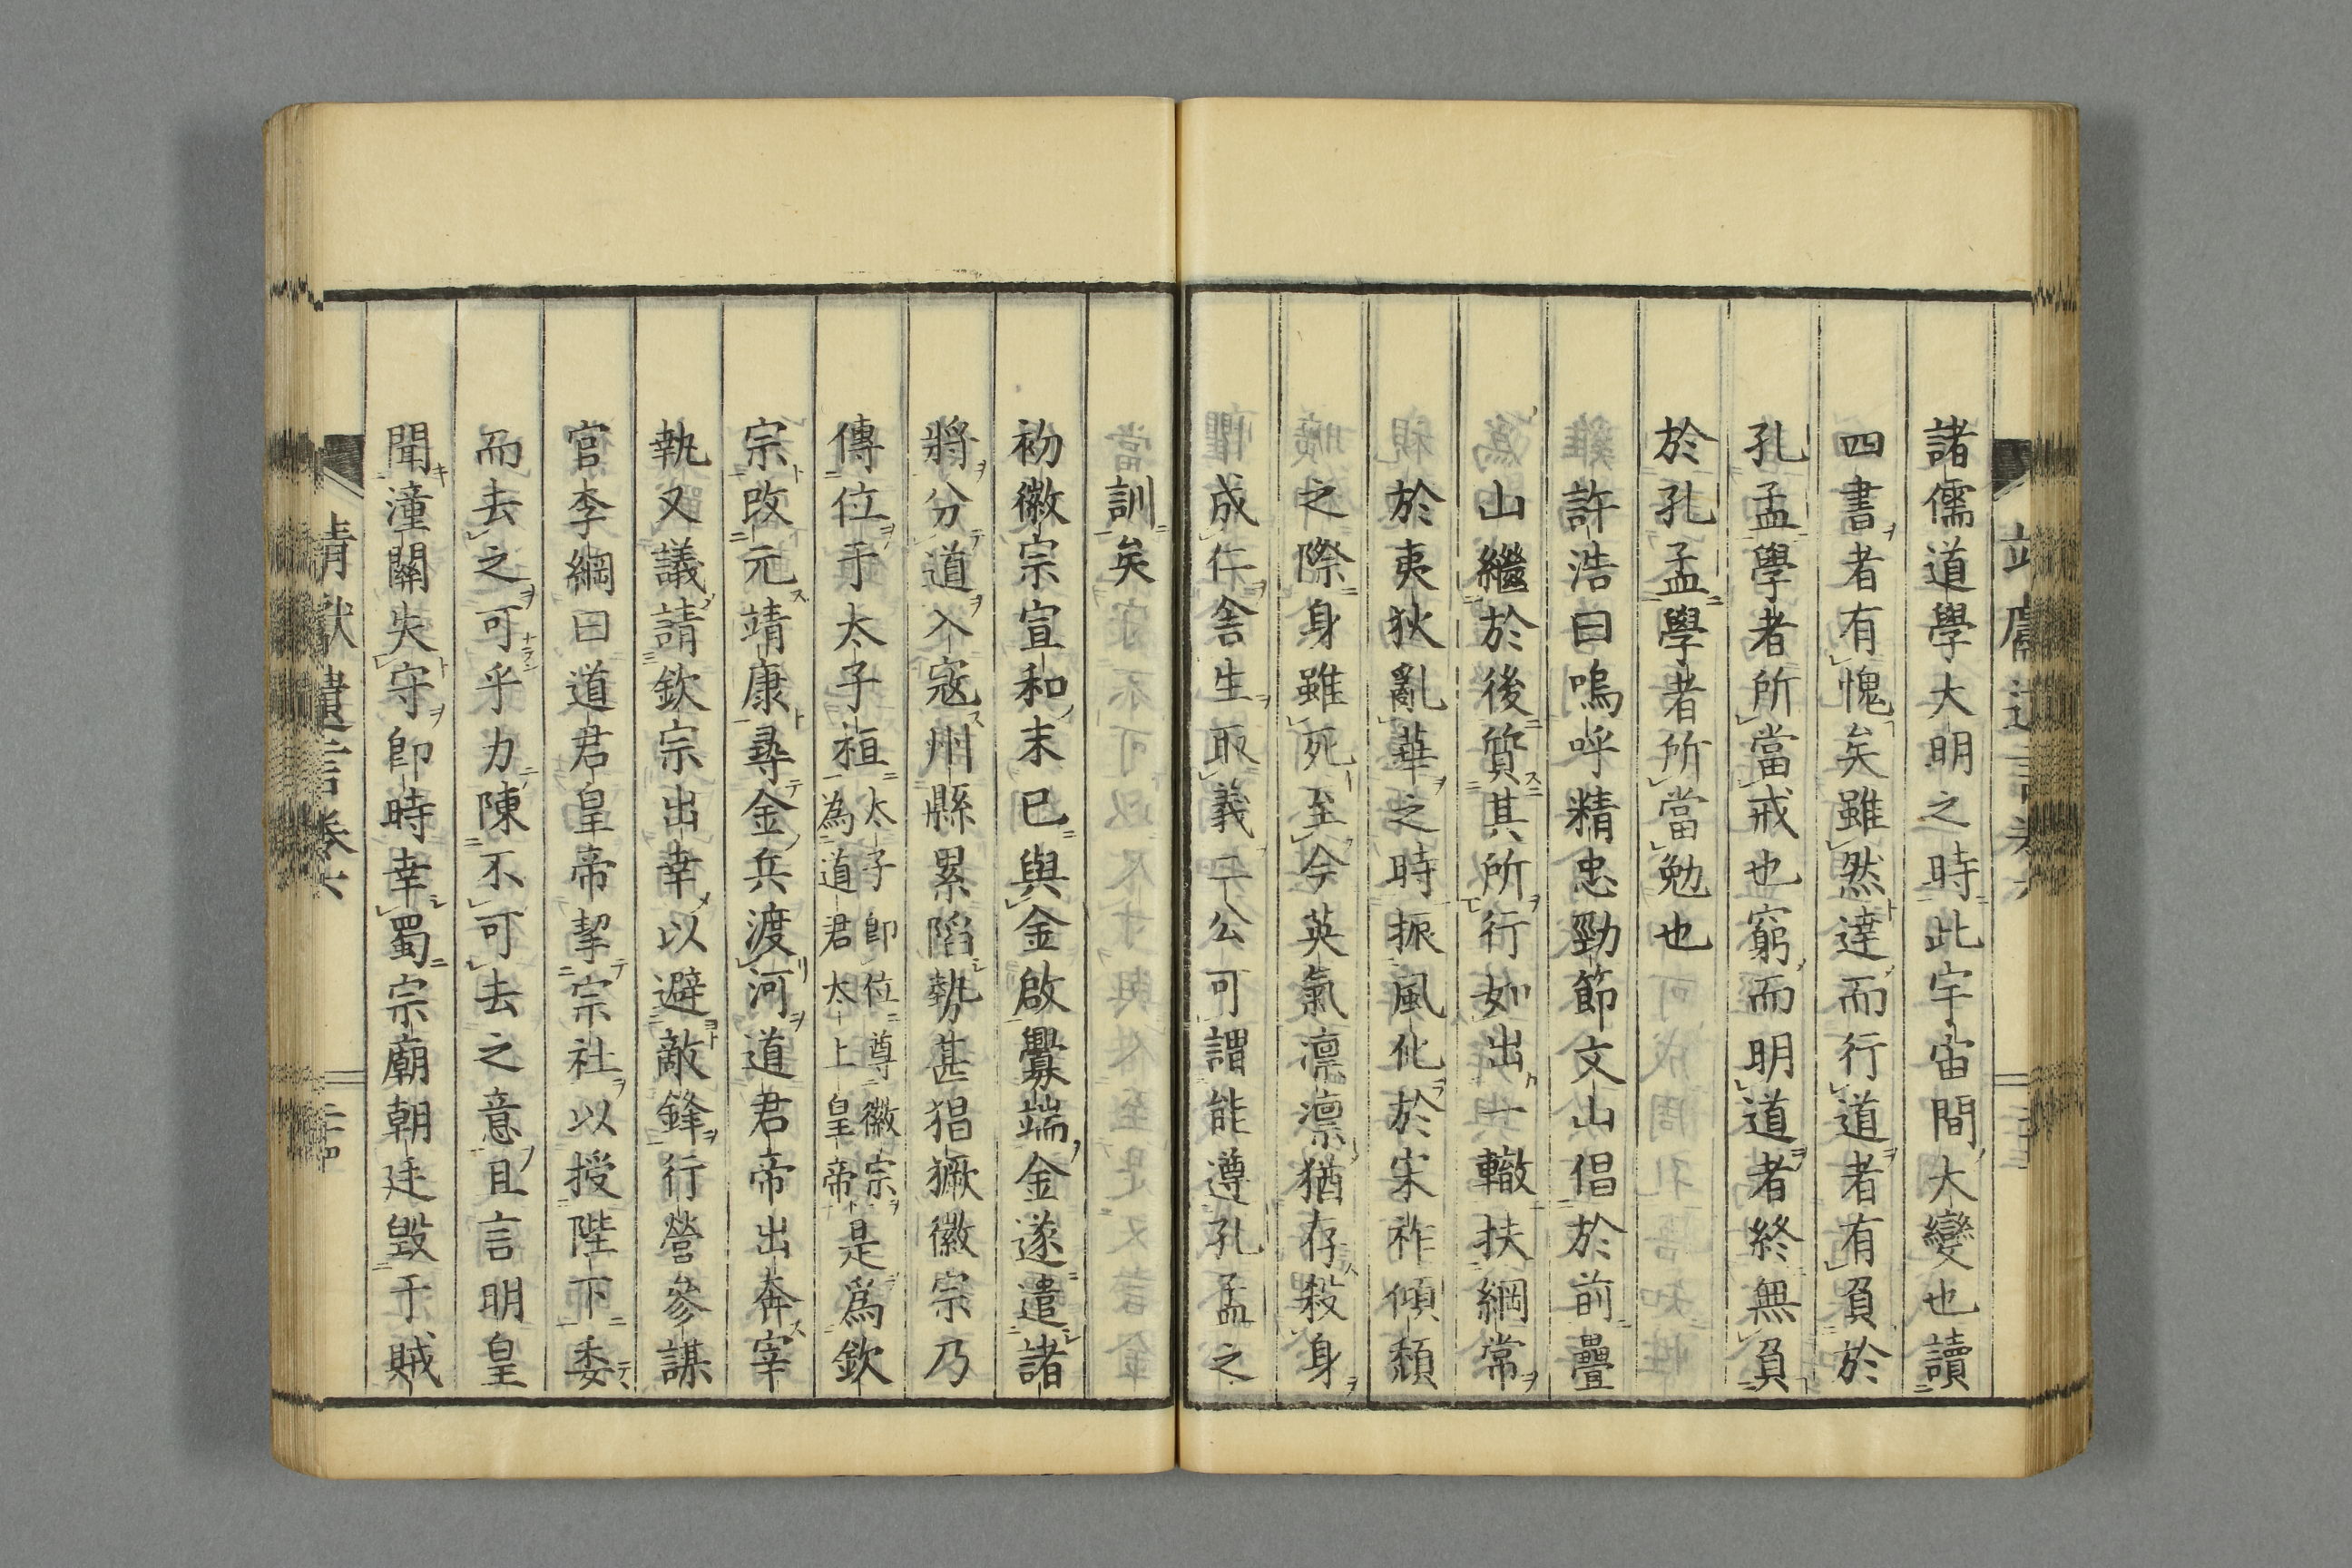 諸儒道學大明之時此宇宙間大變也讀
四書者有愧矣雖然達而行道者有負於
孔孟學者所當戒也窮而明道者終無負
於孔孟學者所當勉也
許浩曰嗚呼精忠勁節文山倡於前疊
山繼於後質其所行如出一轍扶綱常
於夷狄亂華之時振風化於宋祚傾頹
之際身雖死至今英氣凛凛猶存殺身
成仁舍生取義二公可謂能遵孔孟之
訓矣
初徽宗宣和末已與金啟釁端金遂遣諸
將分道入寇州縣累陷勢甚猖獗徽宗乃
傳位于太子桓太子即位尊徽宗為道君太上皇帝是爲欽
宗改元靖康尋金兵渡河道君帝出奔宰
執又議請欽宗出幸以避敵鋒行營參謀
官李綱曰道君皇帝挈宗社以授陛下委
而去之可乎力陳不可去之意且言明皇
聞潼關失守即時幸蜀宗廟朝廷毀于賊
靖獻遺言卷六